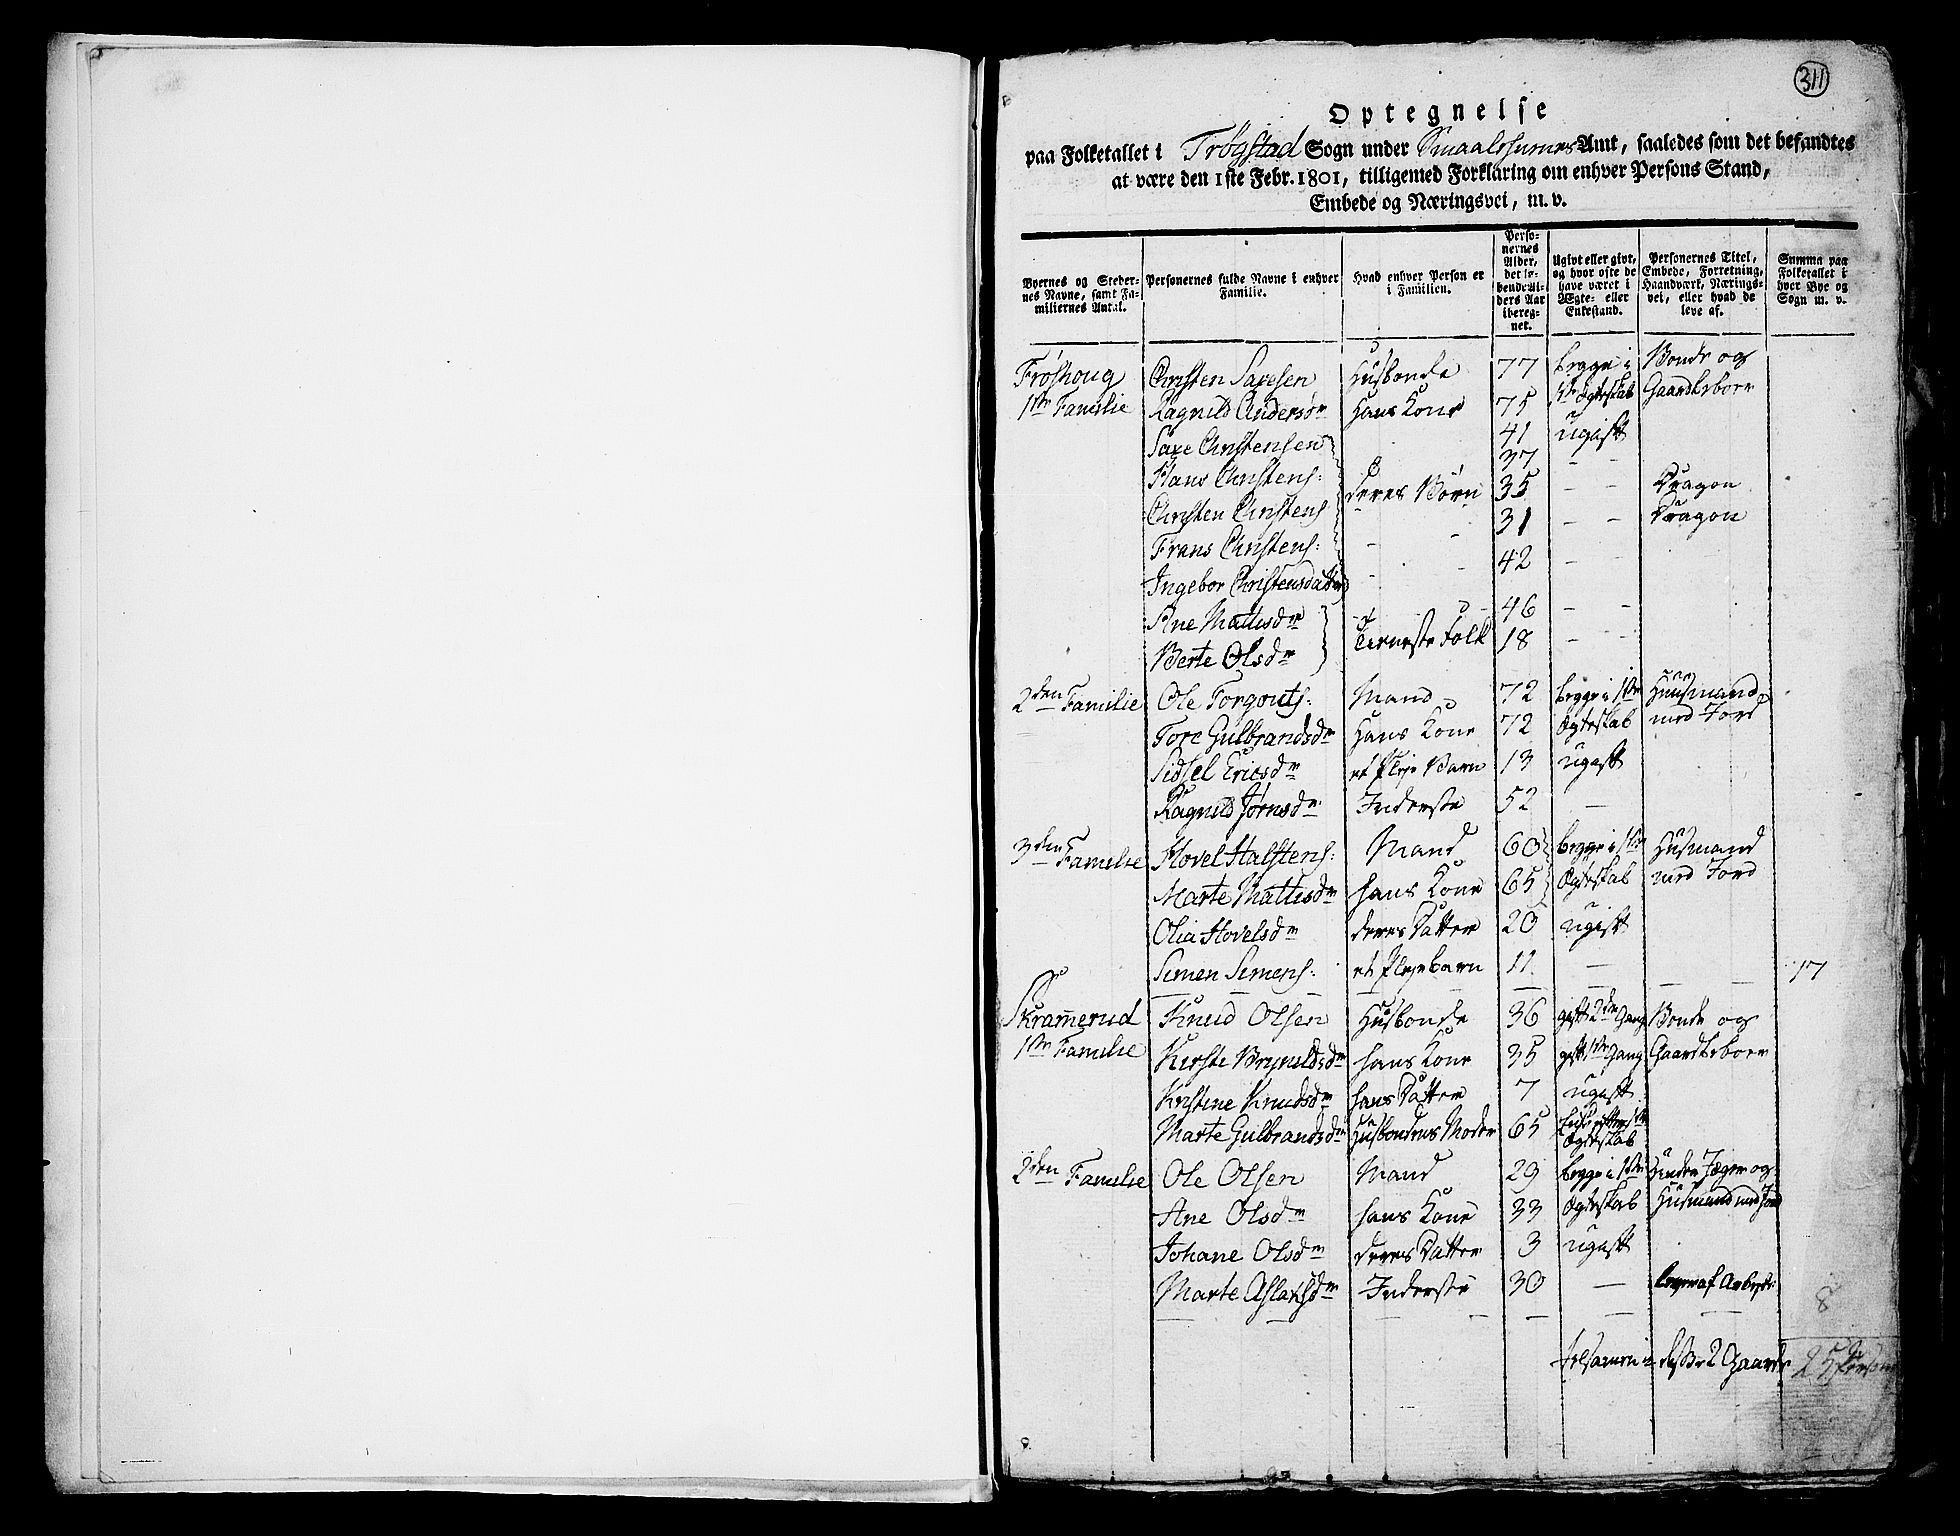 311
Optegnelse
paa Folketallet i Trøgstad Sogn under Smaalehnenes Amt, saaledes som det befandtes
at være den 1ste Febr. 1801, tilligemed Forklaring om enhver Persons Stand,
Embede og Næringsvei, m. v.
Byernes og Steder-
nes Navne, samt Fa-
miliernes Antal.
Personernes fulde Navne i enhver
Familie.
Hvad enhver Person er
i Familien.
Perso-
nernes
Alder,
det lø-
bende Al-
ders Aar
ibereg-
net.
Ugivt eller givt,
og hvor ofte de
have været i
Ægte- eller
Enkestand.
Personernes Titel,
Embede, Forretning,
Haandværk, Nærings-
vei, eller hvad de
leve af.
Summa paa
Folketallet i
hver Bye og
Sogn m. v.
Frøshoug Christen Saxesen Husbonde 77 begge i Bonde og
1ste Familie Ragnild Andersdr Hans Kone 75 1ste Ægteskab Gaardbeboer
Saxe Christensen 41 ugift
Hans Christens: 37 – –
Christen Christens deres Børn 35 – – Dragon
Frans Christens: – – 31 – – Dragon
Ingebor Christensdatter – – 42 – –
Ane Mattisdr 46 – –
Berte Olsdr Tieneste Folk 18 – –
2den Familie Ole Torgouts: Mand 72 begge i 1ste Huusmand
Tore Gulbrandsdr Hans Kone 72 Ægteskab med Jord
Sidsel Ericsdr et Pleje Barn 13 ugift
Ragnild Jørnsdr Inderste 52 –
3den Familie Hovel Halstens: Mand 60 begge i 1ste Husmand
Marte Mattisdr hans Kone 65 Ægteskab med Jord
Olia Hovelsdr deres Datter 20 ugift
Simen Simens: et Plejebarn 11 – 17
Skramerud Knud Olsen Husbonde 36 gift 2den Gang Bonde og
1ste Familie Kirste Brynildsdr hans Kone 35 gift 1ste Gang Gaardbeboer
Kristine Knudsdr hans Datter 7 ugift
Marte Gulbrandsdr Husbondens Moder 65 Enke efter 1ste
Ægteskab
2den Familie Ole Olsen Mand 29 begge i 1ste Jæger og
Ane Olsdr hans Kone 33 Ægteskab Husmand med Jord
Johane Olsdr deres Datter 3 ugift
Marte Aslaksdr Inderste 30 – lever af Arbejde
8
Tilsammen i disse 2 Gaarde 25 Personer